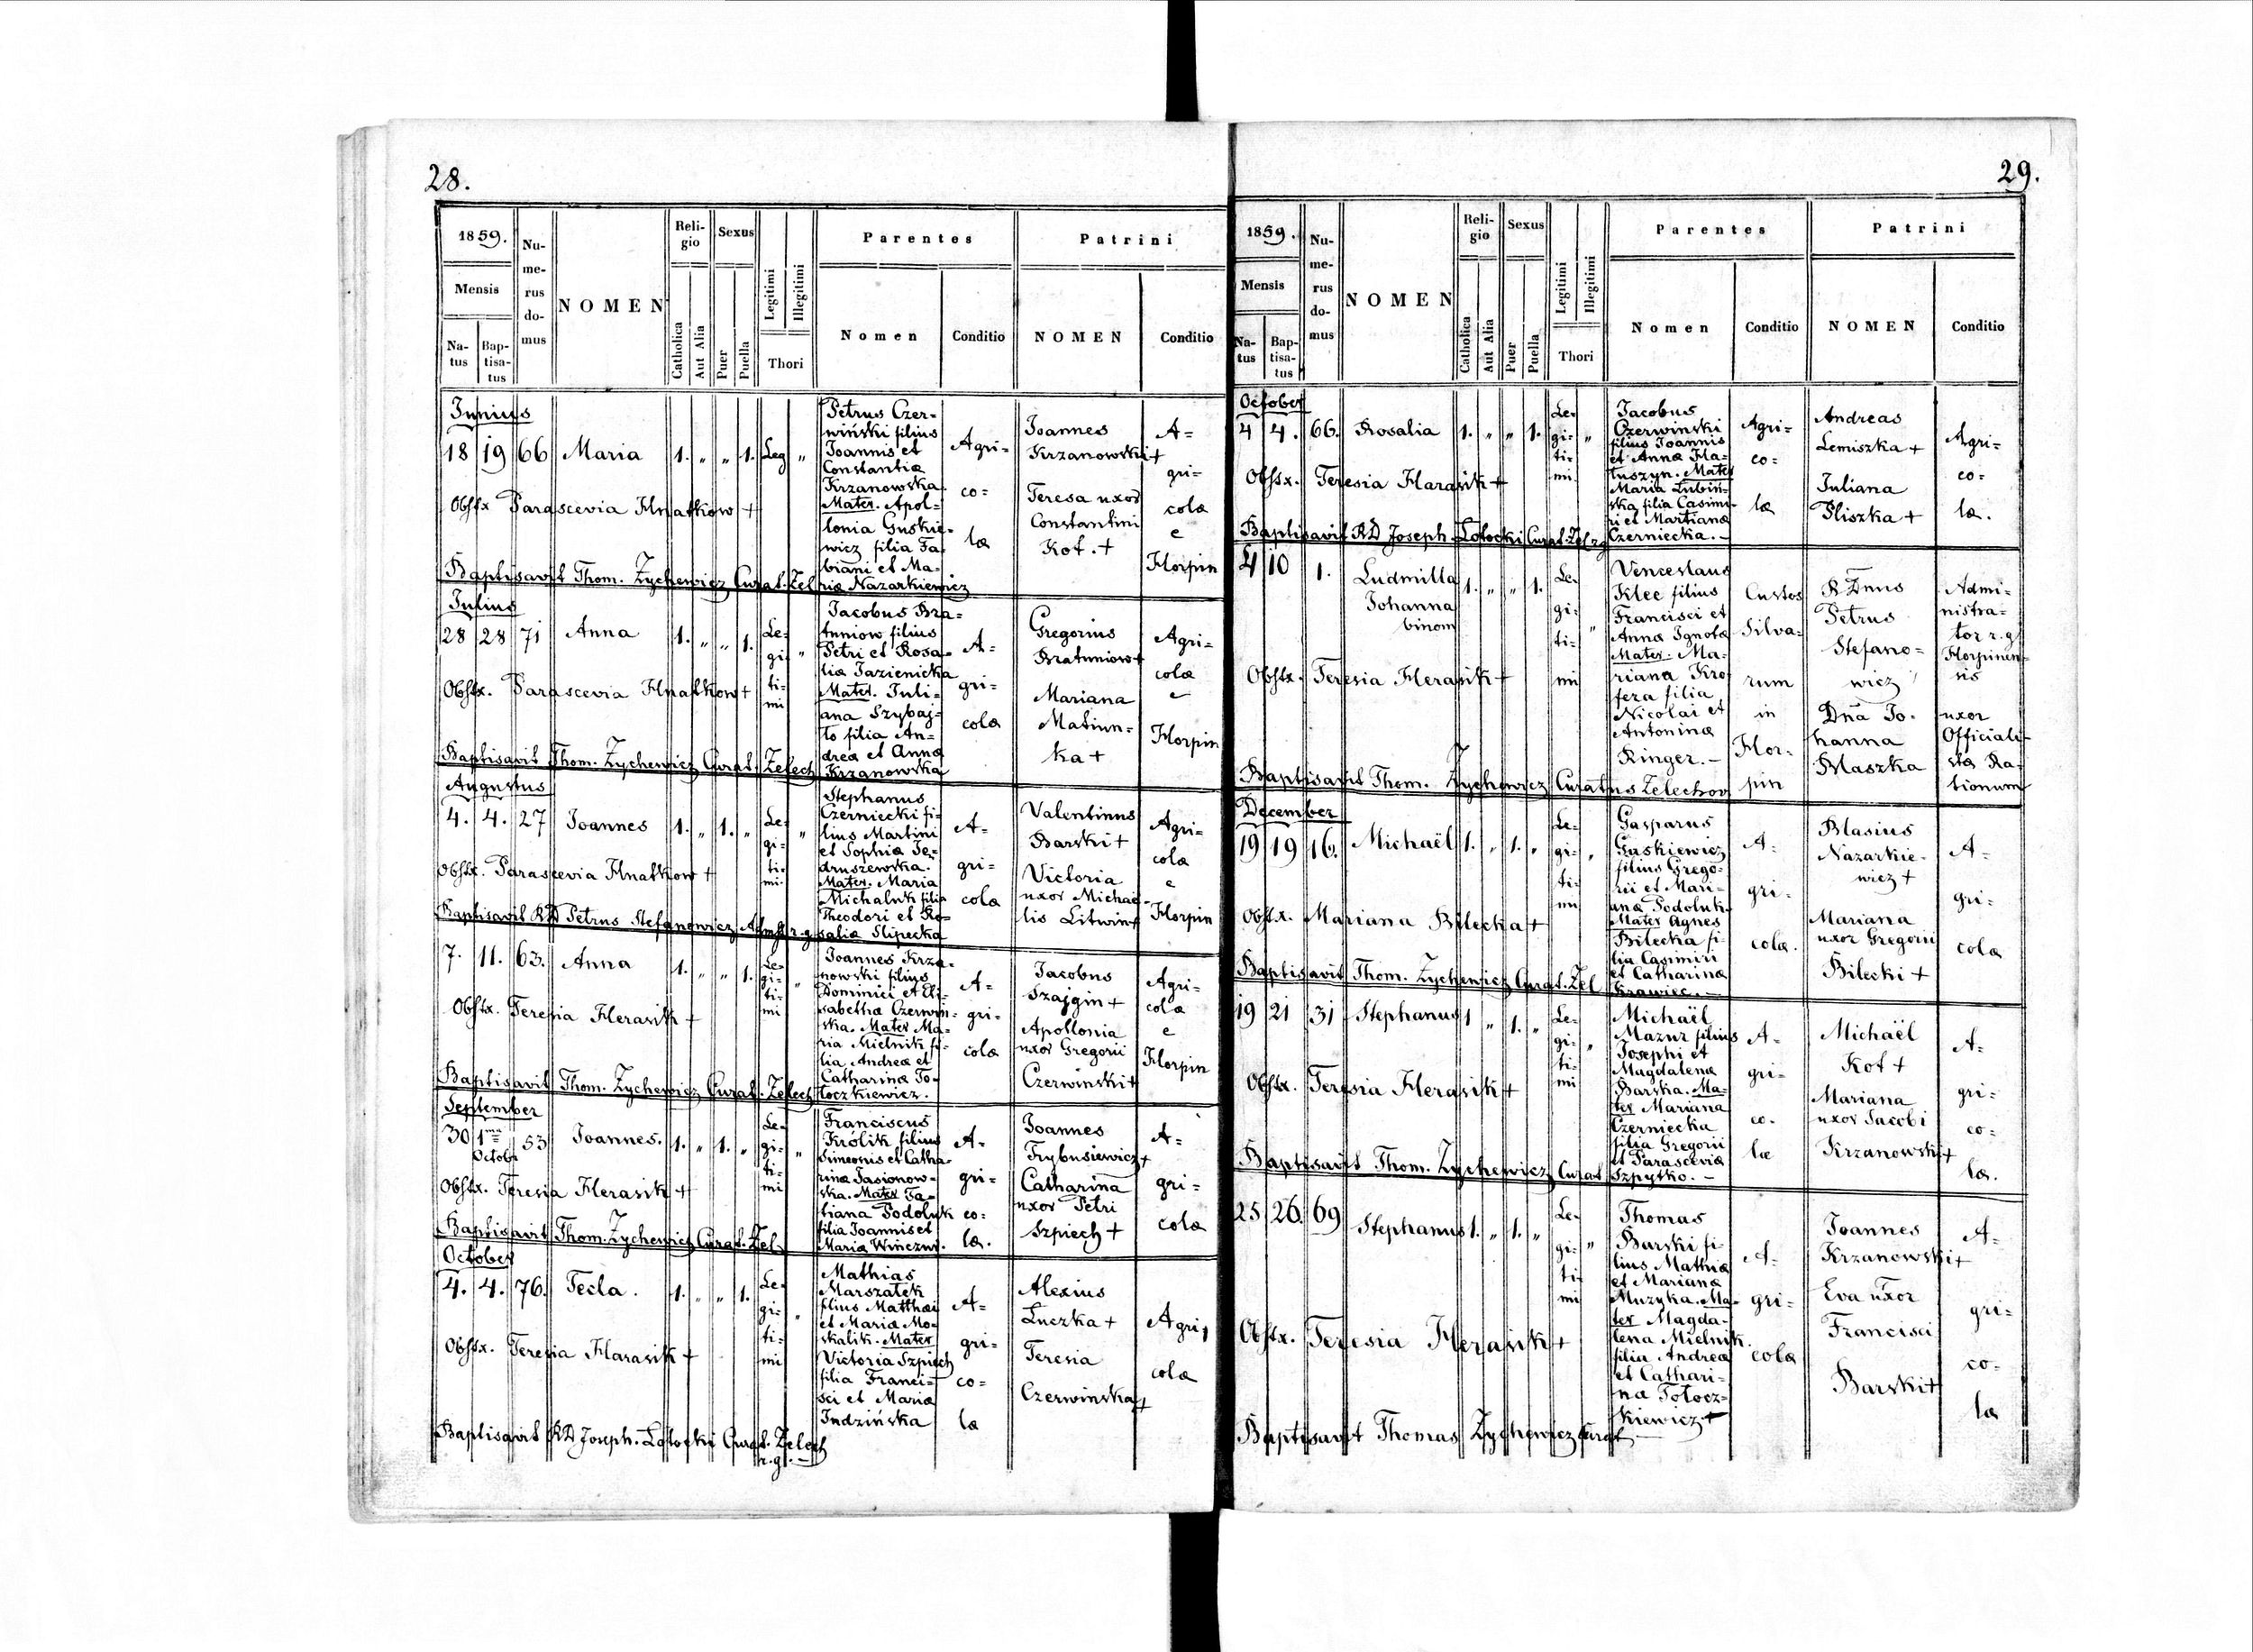 28.
1859.
Mensis
Na-
tus
Bap-
tisa-
tus
Nu-
me-
rus
do-
mus
NOMEN
Reli-
gio
Catholica
Aut Alia
Sexus
Puer
Puella
Legitimi
Illegitimi
Thori
Parentes
Nomen
Conditio
Patrini
NOMEN
Conditio
Junius
18 19 66 Maria 1. „ „ 1. Leg „
Petrus Czer-
wiński filius
Joannis et
Constantia
Krzanowska
Mater. Apol-
lonia Guskie-
wicz filia Fa-
biani et Ma-
ria Nazarkiewicz
Agri=
co=
læ
Joannes
Krzanowski +
Teresa uxor
Constantini
Kot. +
A=
gri=
colæ
e
Horpin
Obstx Parascevia Hnatkow +
Baptisavit Thom. Zychewicz Curat. Zel
Julius
28 28 71 Anna 1. „ „ 1. Le-
gi-
ti-
mi „
Jacobus Bra-
tuniow filius
Petri et Rosa-
lia Jazienicka
Mater. Juli-
ana Szybaj-
ło filia An-
drea et Anna
Krzanowska
A-
gri-
colæ
Gregorius
Bratuniow +
Mariana
Matiun-
ka +
Agri-
colæ
e
Horpin
Obstx. Parascevia Hnatkow +
Baptisavit Thom. Zychewicz Curat. Zelech
Augustus
4. 4. 27 Joannes 1. „ 1. „ Le-
gi-
ti-
mi. „
Stephanus
Czerniecki fi-
lius Martini
et Sophia Je-
druszewska.
Mater. Maria
Michaluk filia
Theodori et Ro-
salia Slipecka
A-
gri-
colæ
Valentinus
Barski +
Victoria
uxor Michae-
lis Litwin +
Agri-
colæ
e
Horpin
Obstx. Parascevia Hnatkow +
Baptisavit RD Petrus Stefanowicz Admstr. r. g.
7. 11. 63. Anna 1. „ „ 1. Le-
gi-
ti-
mi „
Joannes Krza-
nowski filius
Dominici et Eli-
sabetha Czerwin-
ska. Mater Ma-
ria Mielnik fi-
lia Andrea et
Catharina To-
łoczkiewicz.
A-
gri-
colæ
Jacobus
Szajgin +
Apollonia
uxor Gregorii
Czerwinski +
Agri-
colæ
e
Horpin
Obstx. Teresia Herasik +
Baptisavit Thom. Zychewicz Curat. Zelech
September
30 1ma
Octobr 53 Joannes. 1. „ 1. „ Le-
gi-
ti-
mi „
Franciscus
Królik filius
Simeonis et Catha-
rina Jasionow-
ska. Mater Ta-
tiana Podoluk
filia Joannis et
Maria Winczur.
A-
gri-
co-
læ.
Joannes
Trybusiewicz +
Catharina
uxor Petri
Szpiech +
A-
gri-
colæ
Obstx. Teresia Herasik +
Baptisavit Thom. Zychewicz Curat. Zel.
October
4. 4. 76. Tecla. 1. „ „ 1. Le-
gi-
ti-
mi „
Mathias
Marszałek
filius Matthaei
et Maria Mo-
skalik. Mater
Victoria Szpiech
filia Franci-
sci et Maria
Judzińska
A-
gri-
co-
læ
Alexius
Łuczka +
Teresia
Czerwinska +
Agri,
colæ
Obstx. Teresia Harasik +
Baptisavit RD Joseph. Łotocki Curat. Zelech
r. g. –
29.
1859.
Mensis
Na-
tus
Bap-
tisa-
tus
Nu-
me-
rus
do-
mus
NOMEN
Reli-
gio
Catholica
Aut Alia
Sexus
Puer
Puella
Legitimi
Illegitimi
Thori
Parentes
Nomen
Conditio
Patrini
NOMEN
Conditio
October
4 4. 66. Rosalia 1. „ „ 1. Le-
gi-
ti-
mi „
Jacobus
Czerwinski
filius Joannis
et Anna Ha-
łuszyn. Mater
Maria Łubiń-
ska filia Casimi-
ri et Martiana
Czerniecka. –
Agri-
co-
læ
Andreas
Lemiszka +
Juliana
Pliszka +
Agri-
co-
læ.
Obstx. Teresia Harasik +
Baptisavit RD Joseph Łotocki Curat. Zel r g
4 10 1. Ludmilla
Johanna
binom 1. „ „ 1. Le-
gi-
ti-
mi „
Venceslaus
Klee filius
Francisci et
Anna Ignota
Mater. Ma-
riana Kro
fera filia
Nicolai et
Antonina
Ringer. –
Custos
Silva-
rum
in
Hor-
pin
R Dnus
Petrus
Stefano-
wicz
Dna Jo-
hanna
Blaszka
Admi-
nistra-
tor r. g
Horpinen-
sis
uxor
Officiali-
sta Ra-
tionum
Obstx. Teresia Herasik +
Baptisavit Thom. Zychewicz Curatus Zelechov
December
19 19 16. Michaël 1. „ 1. „ Le-
gi-
ti-
mi „
Gasparus
Guskiewicz
filius Grego-
rii et Mari-
ana Podoluk.
Mater Agnes
Bilecka fi-
lia Casimiri
et Catharina
Krawiec. –
A-
gri-
colæ.
Blasius
Nazarkie-
wicz +
Mariana
uxor Gregorii
Bilecki +
A-
gri-
colæ
Obstx. Mariana Bilecka +
Baptisavit Thom. Zychewicz Curat. Zel
19 21 31 Stephanus 1 „ 1. „ Le-
gi-
ti-
mi „
Michaël
Mazur filius
Josephi et
Magdalena
Barska. Ma-
ter Mariana
Czerniecka
filia Gregorii
et Parascevia
Szpytko. –
A-
gri-
co-
læ
Michaël
Kot +
Mariana
uxor Jacobi
Krzanowski +
A-
gri-
co-
læ.
Obstx. Teresia Herasik +
Baptisavit Thom. Zychewicz Curat
25 26. 69 Stephanus 1. „ 1. „ Le-
gi-
ti-
mi „
Thomas
Barski fi-
lius Mathia
et Mariana
Muzyka. Ma-
ter Magda-
lena Mielnik.
filia Andrea
et Cathari-
na Tołocz-
kiewicz +
A-
gri-
colæ
Joannes
Krzanowski +
Eva uxor
Francisci
Barski +
A-
gri-
co-
læ
Obstx. Teresia Herasik +
Baptisavit Thomas Zychewicz Curat